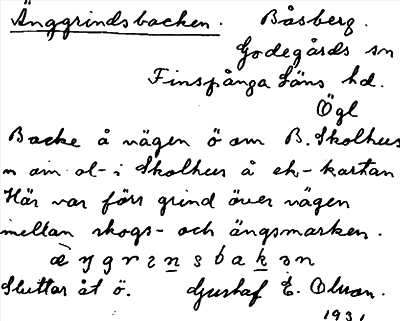 Änggrindsbacken. Båsberg.
Godegårds sn
Finspånga Läns hd.
Ögl
Backe å vägen ö om B. Skolhus
n om ol- i Skolhus å ek-kartan
Här var förr grind över vägen
mellan skogs- och ängsmarken.
Sluttar åt ö. Gustaf E. Olson.
1931